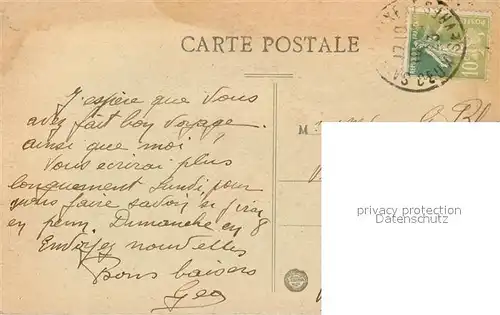 CARTE POSTALE
10c
J'espère que vous
avez fait bon voyage
ainsi que moi !
Vous écrirai plus
longuement Lundi pour
vous faire savoir si j'irai
en perm. Dimanche en 8
Envoyez nouvelles
Bons baisers
Geo
M
privacy protection
Datenschutz